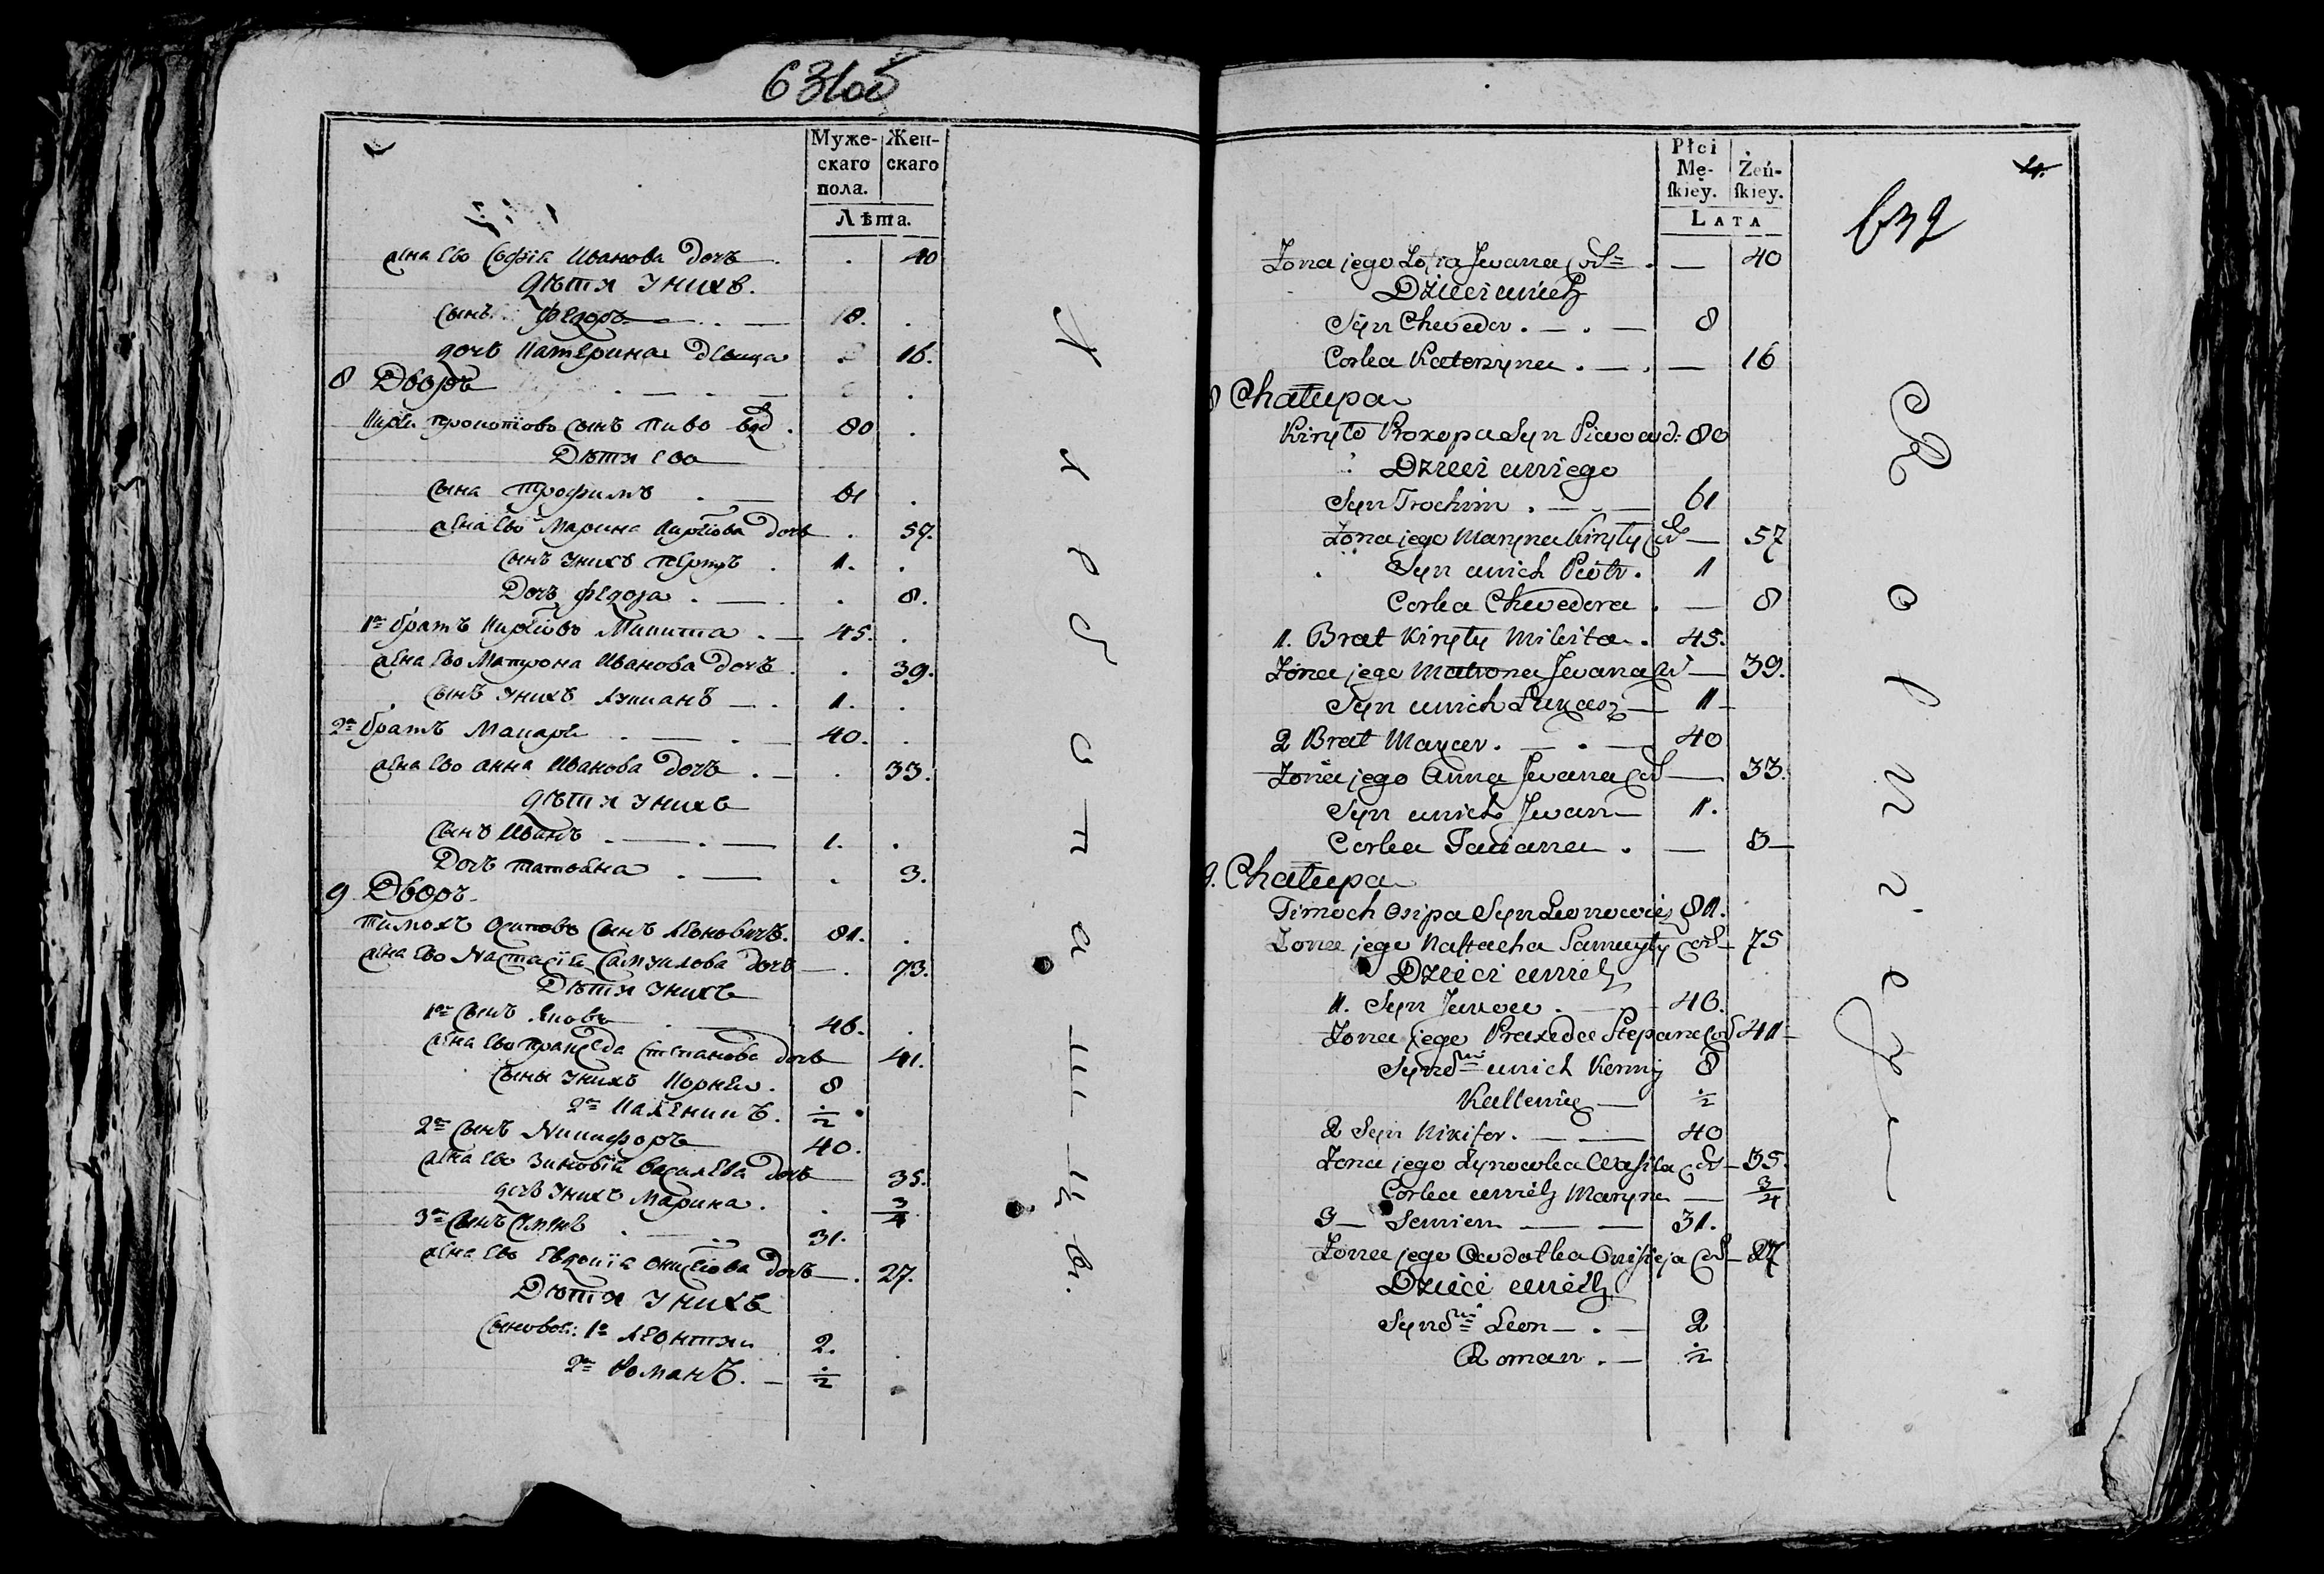 631об
Муже-
скаго
пола.
Жен-
скаго
Лѣта.
жена ево Софїя Иванова дочь . . 40
Дѣти у нихъ.
сынъ Федоръ 8. .
дочь Катерина девица . 16.
8 Дворъ
Кирїла Прокопово сынъ Пиво вдо. 80 .
Дѣти ево
сынъ Трофимъ . 61 .
жена ево Марина Кирїлова дочь . 57.
сынъ у нихъ Петръ . 1. .
Дочь Федора . . 8.
1й братъ Кирїловъ Микита . 45. .
жена ево Матрона Иванова дочь . 39.
сынъ у нихъ Лукианъ . 1. .
2й братъ Макаръ . 40. .
жена ево Анна Иванова дочь . . 33.
Дѣти у нихъ
сынъ Иванъ . . 1. .
Дочь Татьяна . . 3.
9 Дворъ
Тимохъ Осиповъ сынъ Леоновичъ. 81. .
жена ево Настасїя Самуилова дочь . 73.
Дѣти у нихъ
1й сынъ Яковъ 46. .
жена ево Пракседа Степанова дочь 41.
сыны у нихъ Корней. 8
2й Каленикъ. ½ .
2й сынъ Никифоръ 40.
жена ево Зиновїя Васильева дочь 35.
дочь у нихъ Марина. . ¾
3й сынъ Семенъ 31.
жена ево Евдокїя Онисїова дочь . 27.
Дѣти у нихъ
сыновей: 1й Леонтий 2. .
2й Романъ. ½ .
Хлѣбопашцы.
Płci
Mę-
ſkiéy.
Żeń-
ſkiey.
LATA
4.
632
Żona jego Zofia Jwana Cór: . — 40
Dzieci u nich
Syn Chwedor . — . — 8
Corka Katerzyna . — . — 16
8 Chałupa
Kiryło Prokopa Syn Piwo wd: 80
Dzieci u niego
Syn Trochim . — 61
Żona jego Maryna Kiryły Cór — 57
Syn u nich Piotr . 1
Corka Chwedora . — 8
1. Brat Kiryły Mikita . 45.
Żona jego Matrona Jwana Cór — 39.
Syn u nich Łukasz — 1 -
2 Brat Makar . — . — 40
Żona jego Anna Jwana Cór — 33.
Syn u nich Jwan — 1.
Corka Taciana . — 3 —
9. Chałupa
Timoch Osipa Syn Leonowicz 81.
Żona jego Nastacha Samuyły Cór — 75
Dzieci u nich
1. Syn Jakow . — 46.
Żona jego Praxeda Stepana Cór 41 -
Synów u nich Korniy 8
Kallenik — ½
2 Syn Nikifor . — — 40
Żona jego Zynowka Wasila Cór — 35.
Corka u nich Maryna — ¾
3 — Semien — — 31.
Żona jego Awdotka Onisieja Cór — 27
Dzieci u nich
Synów Leon — . — 2
Roman . — ½
Rolnicy